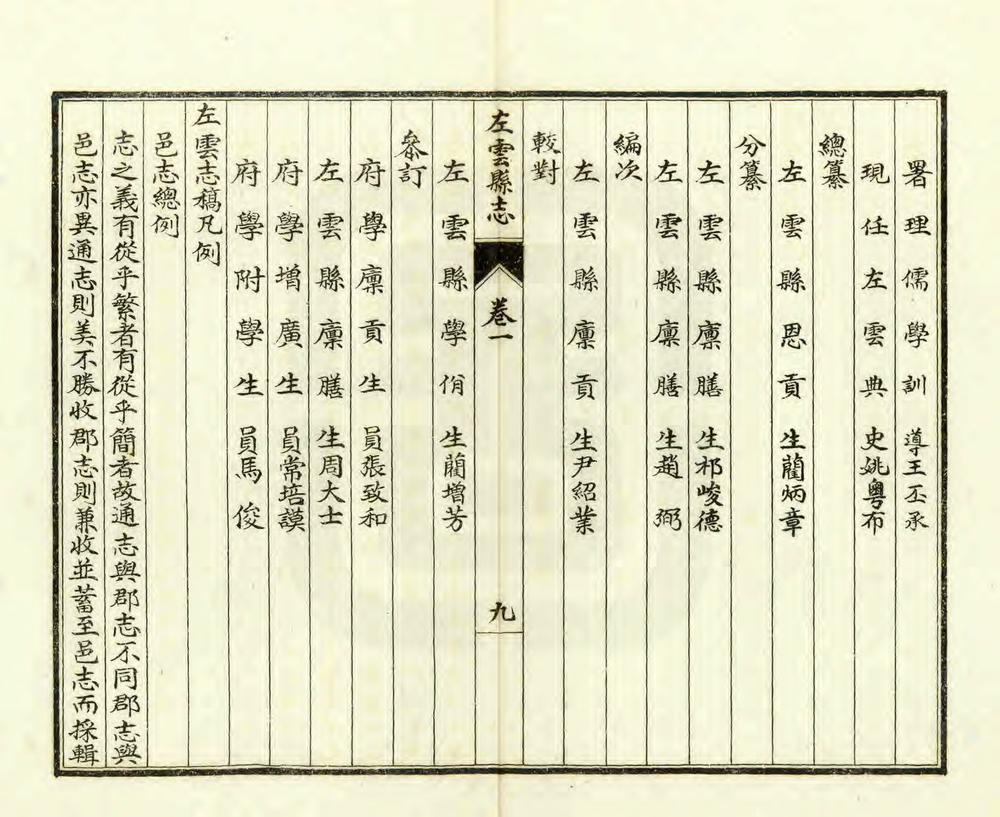 署理儒學訓導王丕承
現任左雲典史姚粵布
總纂
左雲縣恩貢生藺炳章
分纂
左雲縣廩膳生祁峻德
左雲縣廩膳生趙弼
編次
左雲縣廩貢生尹紹業
較對
左雲縣志
卷一
九
左雲縣學佾生藺增芳
叅訂
府學廩貢生員張致和
左雲縣廩膳生周大士
府學增廣生員常培謨
府學附學生員馬俊
左雲志稿凡例
邑志總例
志之義有從乎繁者有從乎簡者故通志與郡志不同郡志與
邑志亦異通志則美不勝收郡志則兼收並蓄至邑志而採輯